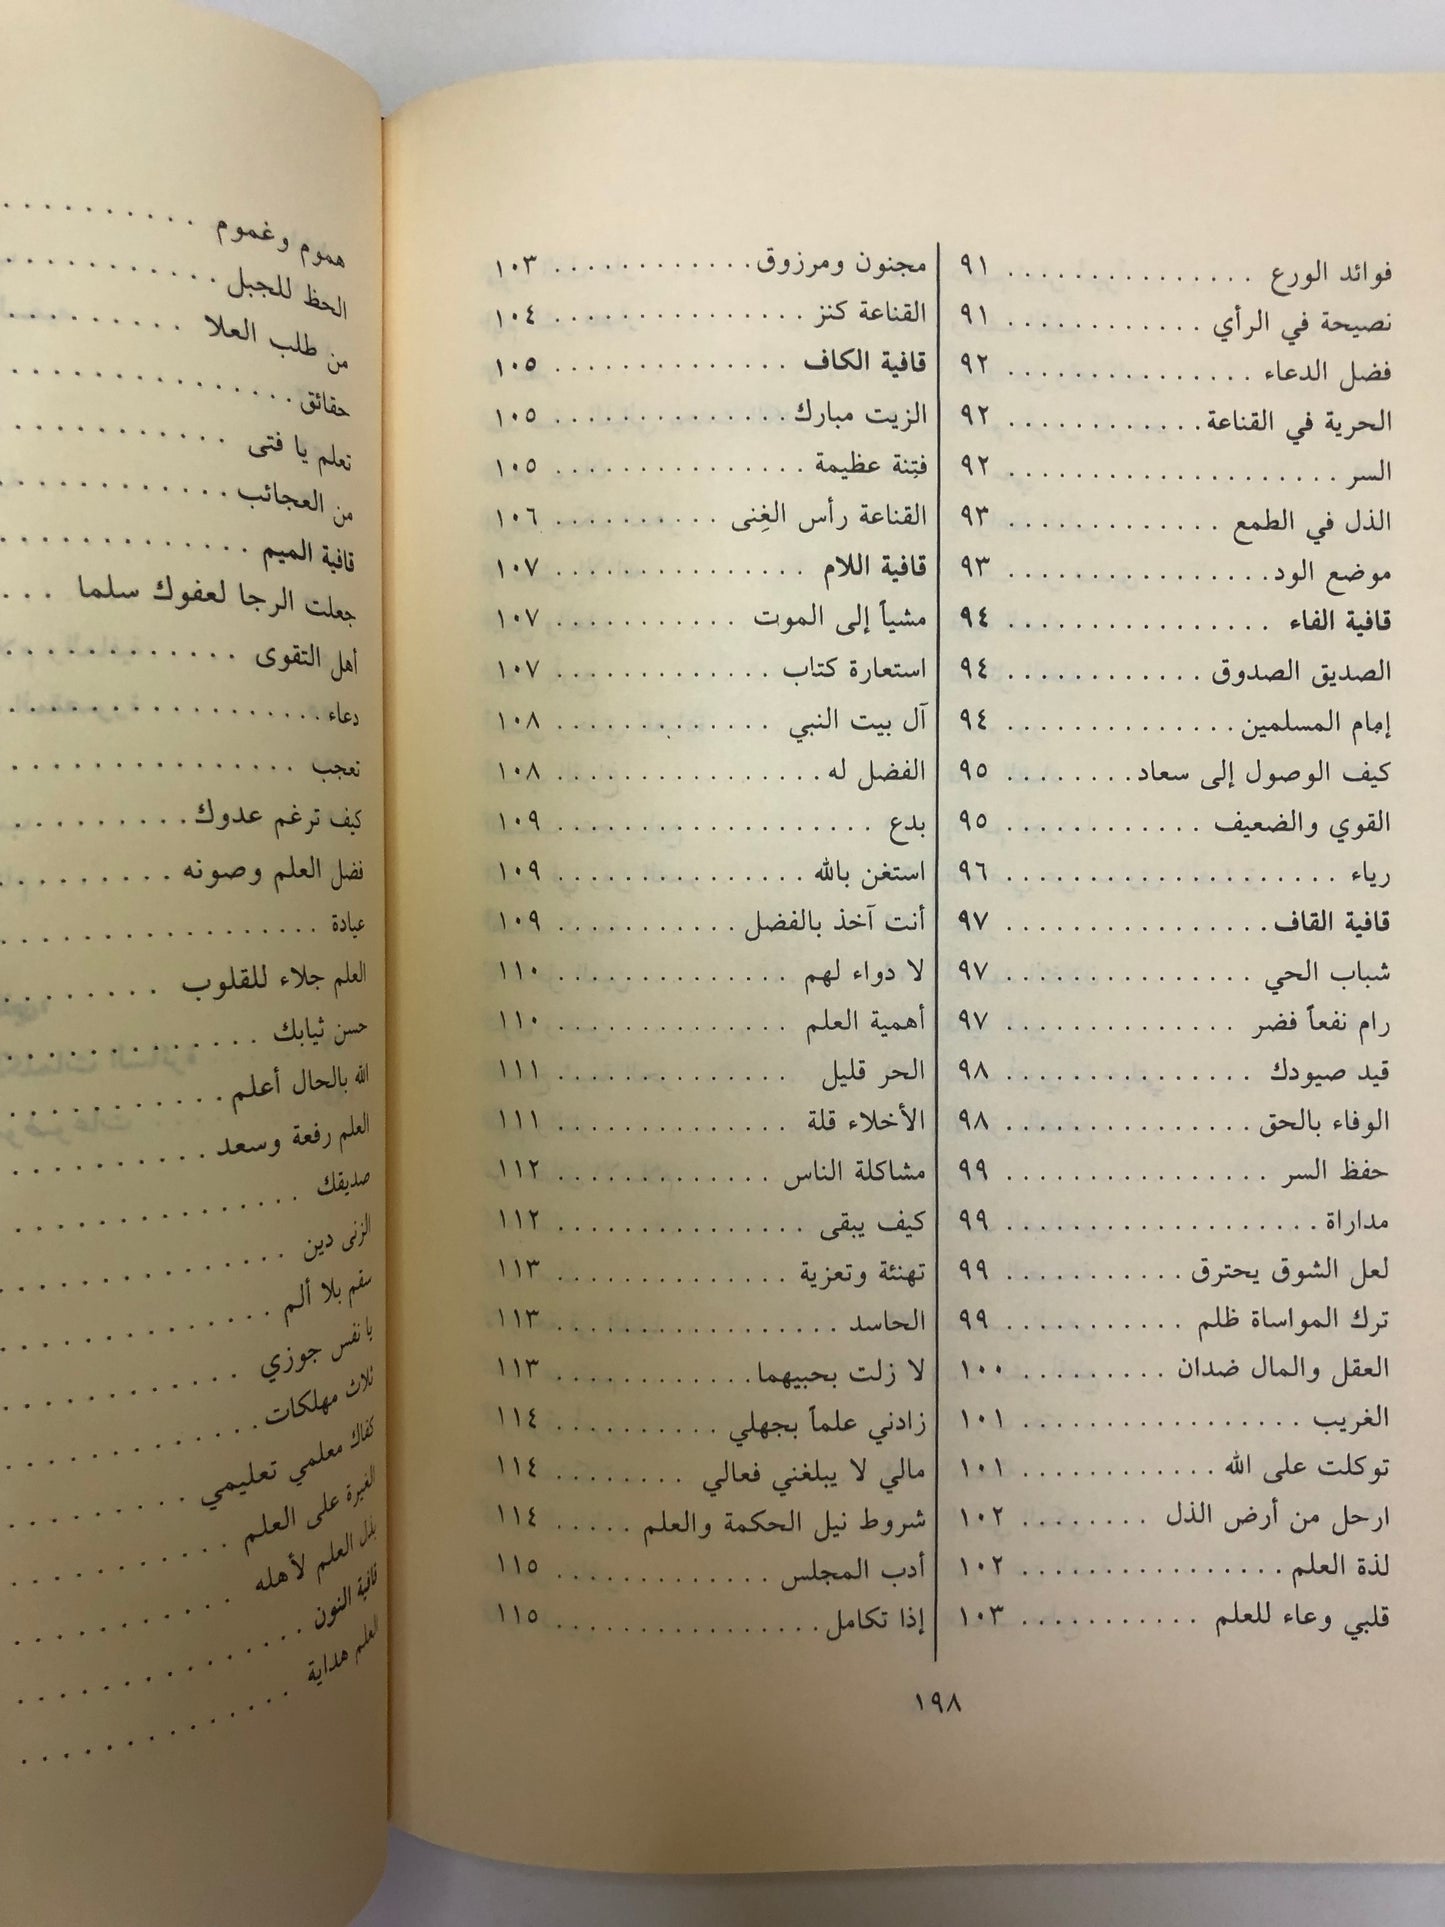 فوائد الورع . . . . . . . . . . . . . . . ٩١
نصيحة في الرأي . . . . . . . . . . . . ٩١
فضل الدعاء . . . . . . . . . . . . . . . ٩٢
الحرية في القناعة . . . . . . . . . . . . ٩٢
السر . . . . . . . . . . . . . . . . . . . . ٩٢
الذل في الطمع . . . . . . . . . . . . . ٩٣
موضع الود . . . . . . . . . . . . . . . . ٩٣
قافية الفاء . . . . . . . . . . . . . . . . ٩٤
الصديق الصدوق . . . . . . . . . . . . ٩٤
إمام المسلمين . . . . . . . . . . . . . . ٩٤
كيف الوصول إلى سعاد . . . . . . . . ٩٥
القوي والضعيف . . . . . . . . . . . . ٩٥
رياء . . . . . . . . . . . . . . . . . . . . . ٩٦
قافية القاف . . . . . . . . . . . . . . . . ٩٧
شباب الحي . . . . . . . . . . . . . . . ٩٧
رام نفعاً فضر . . . . . . . . . . . . . . ٩٧
قيد صيودك . . . . . . . . . . . . . . . ٩٨
الوفاء بالحق . . . . . . . . . . . . . . . ٩٨
حفظ السر . . . . . . . . . . . . . . . . ٩٩
مداراة . . . . . . . . . . . . . . . . . . . ٩٩
لعل الشوق يحترق . . . . . . . . . . . ٩٩
ترك المواساة ظلم . . . . . . . . . . . ٩٩
العقل والمال ضدان . . . . . . . . . . ١٠٠
الغريب . . . . . . . . . . . . . . . . . ١٠١
توكلت على الله . . . . . . . . . . . . ١٠١
ارحل من أرض الذل . . . . . . . . ١٠٢
لذة العلم . . . . . . . . . . . . . . . . ١٠٢
قلبي وعاء للعلم . . . . . . . . . . . ١٠٣
مجنون ومرزوق . . . . . . . . . . . . ١٠٣
القناعة كنز . . . . . . . . . . . . . . . ١٠٤
قافية الكاف . . . . . . . . . . . . . . ١٠٥
الزيت مبارك . . . . . . . . . . . . . . ١٠٥
فتِنة عظيمة . . . . . . . . . . . . . . . ١٠٥
القناعة رأس الغِنى . . . . . . . . . . ١٠٦
قافية اللام . . . . . . . . . . . . . . . ١٠٧
مشياً إلى الموت . . . . . . . . . . . ١٠٧
استعارة كتاب . . . . . . . . . . . . . ١٠٧
آل بيت النبي . . . . . . . . . . . . . ١٠٨
الفضل له . . . . . . . . . . . . . . . . ١٠٨
بدع . . . . . . . . . . . . . . . . . . . ١٠٩
استغن بالله . . . . . . . . . . . . . . . ١٠٩
أنت آخذ بالفضل . . . . . . . . . . . ١٠٩
لا دواء لهم . . . . . . . . . . . . . . ١١٠
أهمية العلم . . . . . . . . . . . . . . ١١٠
الحر قليل . . . . . . . . . . . . . . ١١١
الأخلاء قلة . . . . . . . . . . . . . . ١١١
مشاكلة الناس . . . . . . . . . . . . . ١١٢
كيف يبقى . . . . . . . . . . . . . . . ١١٢
تهنئة وتعزية . . . . . . . . . . . . . . ١١٣
الحاسد . . . . . . . . . . . . . . . . . ١١٣
لا زلت بحبيهما . . . . . . . . . . . . ١١٣
زادني علماً بجهلي . . . . . . . . . . ١١٤
مالي لا يبلغني فعالي . . . . . . . . ١١٤
شروط نيل الحكمة والعلم . . . . . ١١٤
أدب المجلس . . . . . . . . . . . . . ١١٥
إذا تكامل . . . . . . . . . . . . . . . . ١١٥
١٩٨
هموم وغموم . . . . . . . . . .
الحظ للجبل . . . . . . . . . . .
من طلب العلا . . . . . . . . . .
حقائق . . . . . . . . . . . . . .
تعلم يا فتى . . . . . . . . . . .
من العجائب . . . . . . . . . . .
قافية الميم . . . . . . . . . . . .
جعلت الرجا لعفوك سلما . . .
أهل التقوى . . . . . . . . . . .
دعاء . . . . . . . . . . . . . . .
تعجب . . . . . . . . . . . . . .
كيف ترغم عدوك . . . . . . . . .
فضل العلم وصونه . . . . . . . . .
عيادة . . . . . . . . . . . . . . .
العلم جلاء للقلوب . . . . . . . .
حسن ثيابك . . . . . . . . . . . .
الله بالحال أعلم . . . . . . . . . .
العلم رفعة وسعد . . . . . . . . . .
صديقك . . . . . . . . . . . . . .
الزنى دين . . . . . . . . . . . . .
سقم بلا ألم . . . . . . . . . . . .
يا نفس جوزي . . . . . . . . . . .
ثلاث مهلكات . . . . . . . . . . .
كفاك معلمي تعليمي . . . . . . . .
الغيرة على العلم . . . . . . . . . .
بذل العلم لأهله . . . . . . . . . .
قافية النون . . . . . . . . . . . . .
العلم هداية . . . . . . . . . . . . .